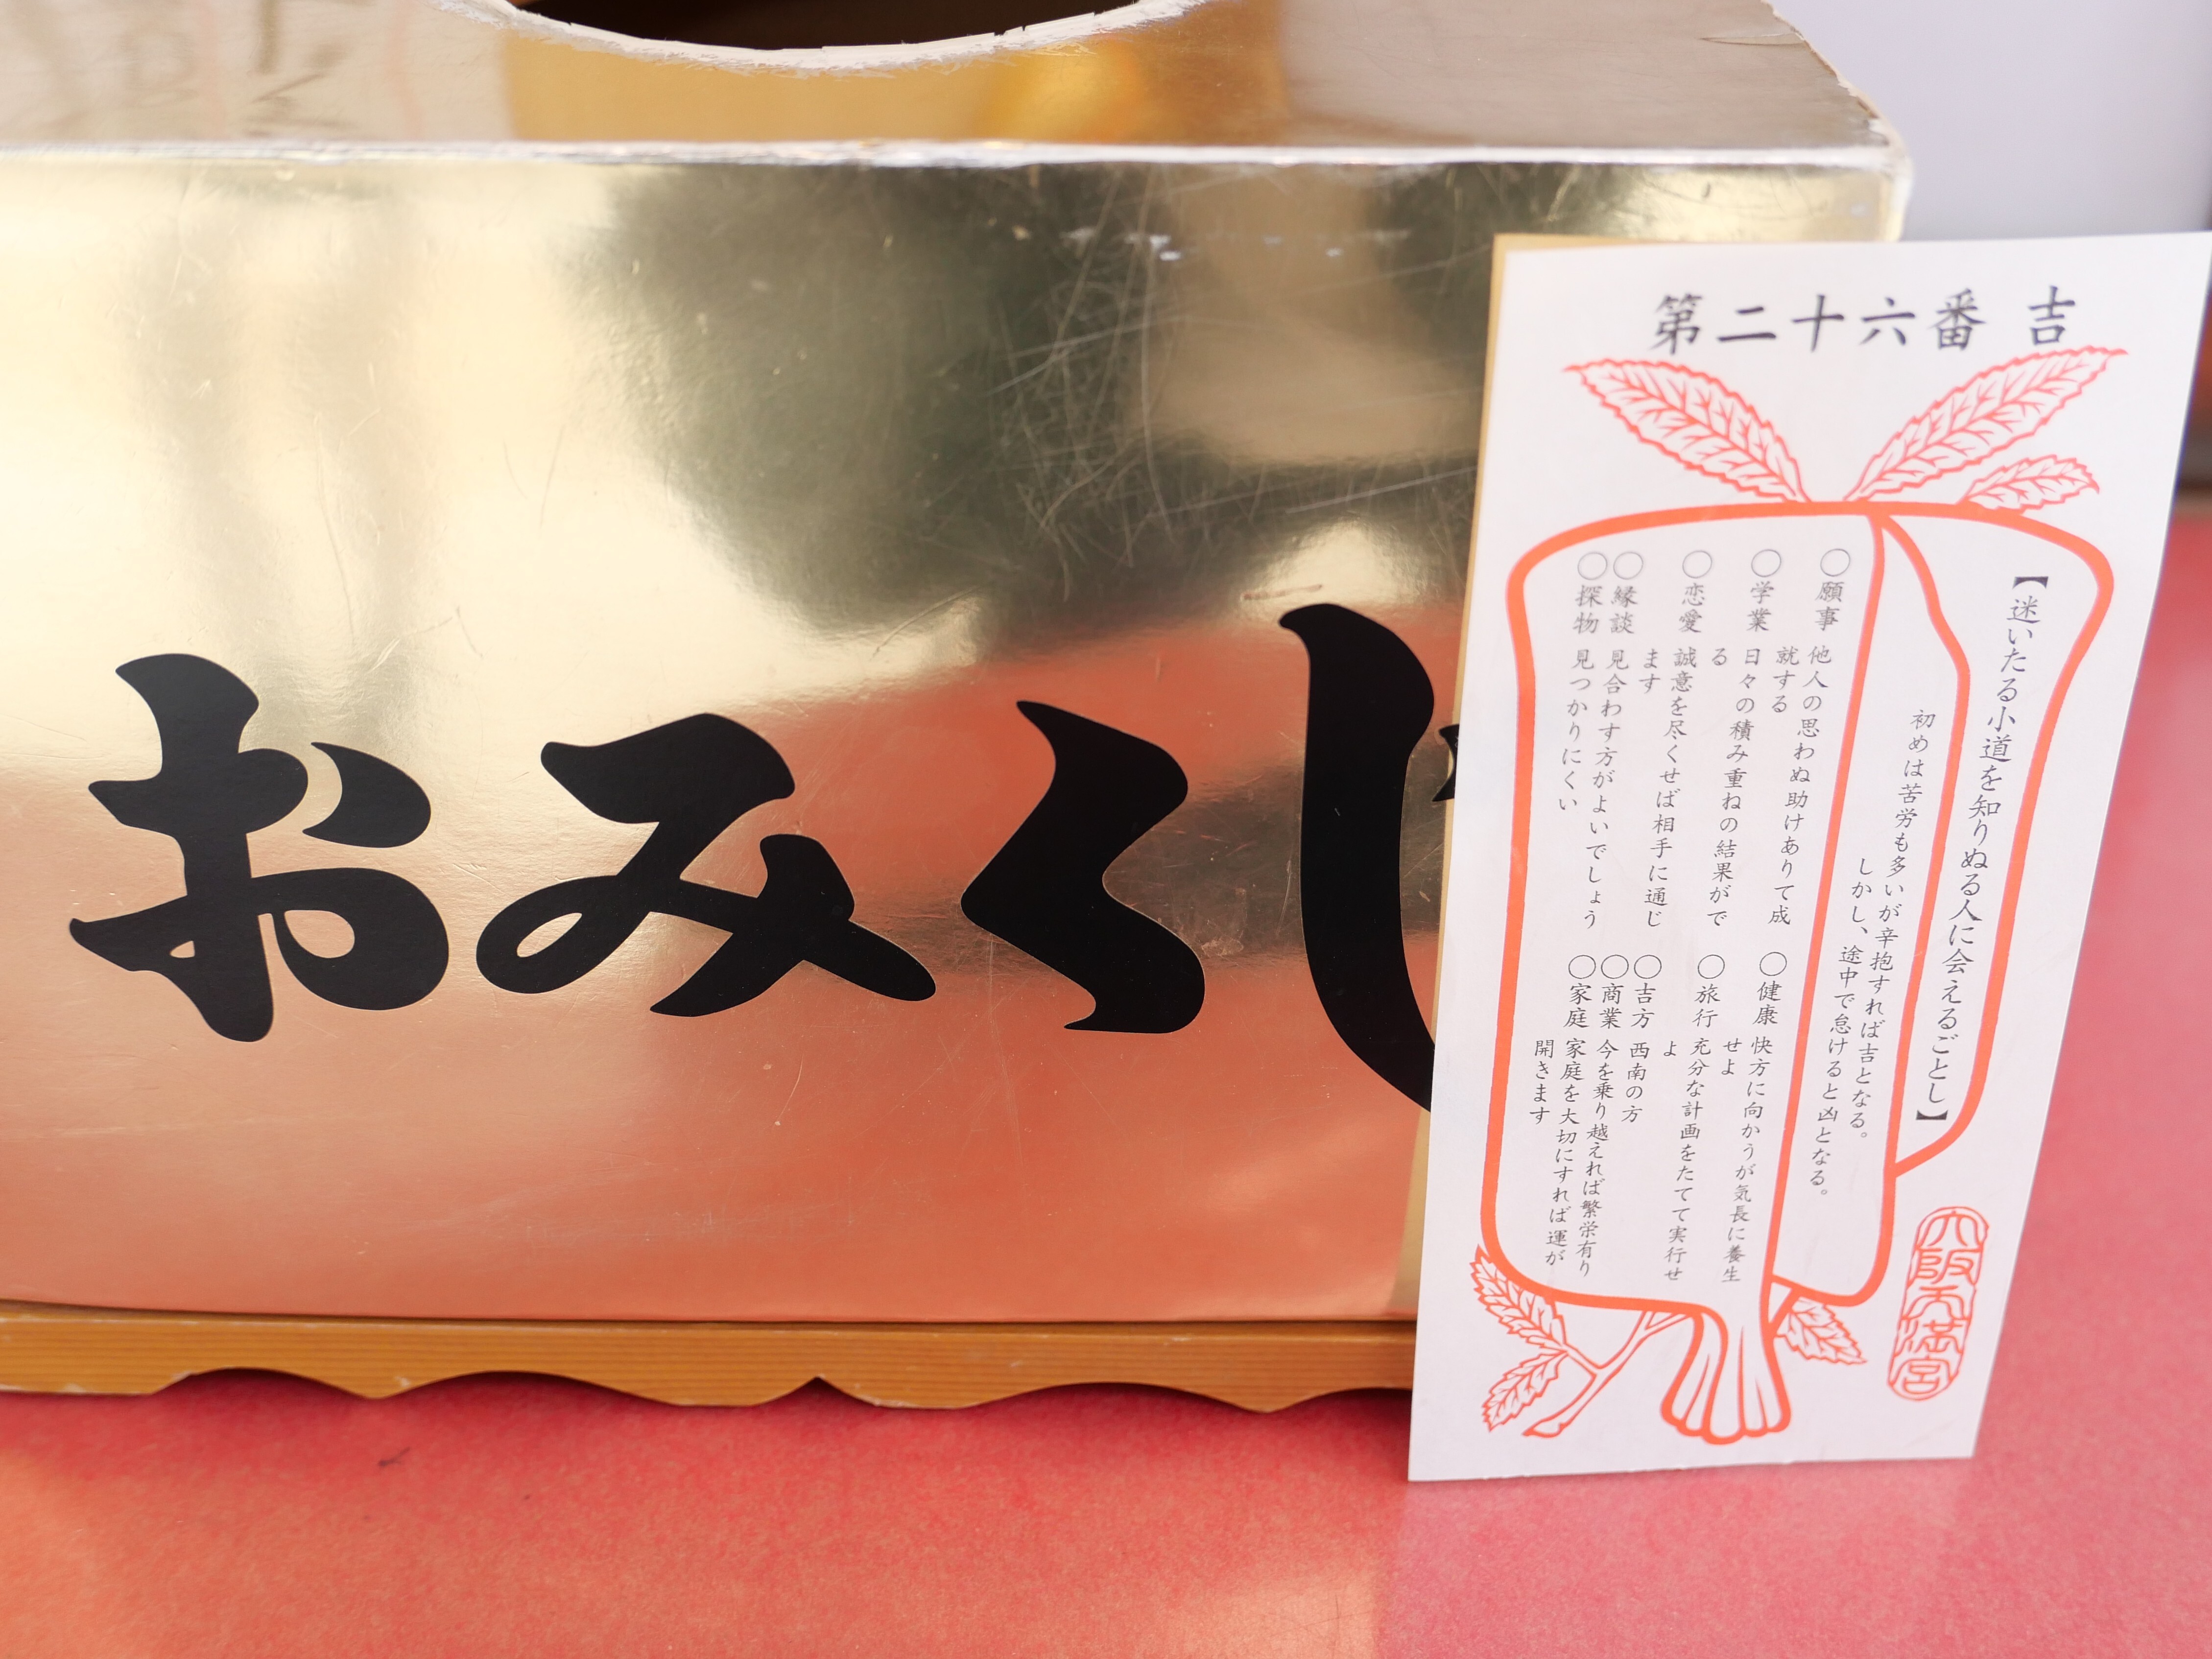 おみくじ
第二十六番 吉
【迷いたる小道を知りぬる人に会えるごとし】
初めは苦労も多いが辛抱すれば吉となる。
しかし、途中で怠けると凶となる。
○願事 他人の思わぬ助けありて成
就する
○学業 日々の積み重ねの結果がで
る
○恋愛 誠意を尽くせば相手に通じ
ます
○縁談 見合わす方がよいでしょう
○探物 見つかりにくい
○健康 快方に向かうが気長に養生
せよ
○旅行 充分な計画をたてて実行せ
よ
○吉方 西南の方
○商業 今を乗り越えれば繁栄有り
○家庭 家庭を大切にすれば運が
開きます
大阪天満宮